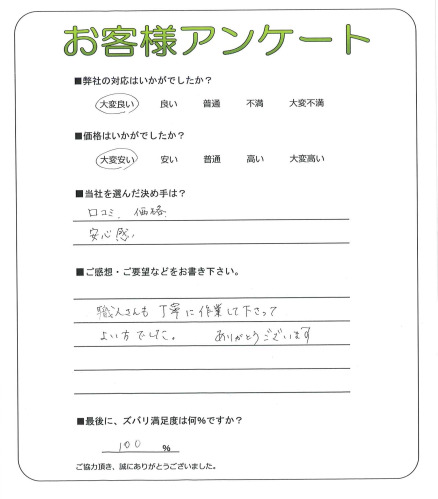 お客様アンケート
■弊社の対応はいかがでしたか?
大変良い 良い 普通 不満 大変不満
■価格はいかがでしたか?
大変安い 安い 普通 高い 大変高い
■当社を選んだ決め手は?
口コミ、価格、
安心感、
■ご感想・ご要望などをお書き下さい。
職人さんも丁寧に作業して下さって
よい方でした。 ありがとうございます
■最後に、ズバリ満足度は何%ですか?
100 %
ご協力頂き、誠にありがとうございました。